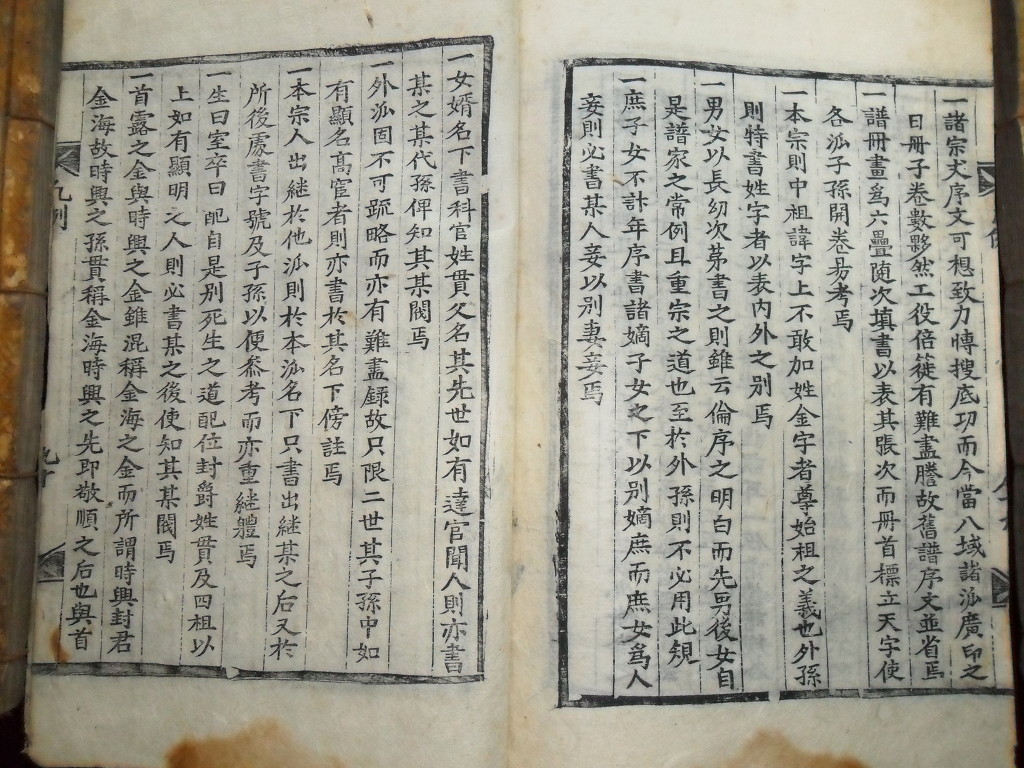 一諸宗丈序文可想致力博搜底功而今當八域諸派廣印之
日冊子卷數夥然工役倍蓰有難盡謄故舊譜序文並省焉
一譜冊畫爲六疊随次填書以表其張次而冊首標立天字使
各派子孫開卷易考焉
一本宗則中祖諱字上不敢加姓金字者尊始祖之義也外孫
則特書姓字者以表內外之別焉
一男女以長幼次苐書之則雖云倫序之明白而先男後女自
是譜家之常例且重宗之道也至於外孫則不必用此規
一庶子女不計年序書諸嫡子女之下以別嫡庶而庶女爲人
妾則必書某人妾以別妻妾焉
一女婿名下書科官姓貫父名其先世如有達官聞人則亦書
某之某代孫俾知其某閥焉
一外派固不可䟽略而亦有難盡録故只限二世其子孫中如
有顯名高官者則亦書於其名下傍註焉
一本宗人出継於他派則於本派名下只書出継某之后又於
所後處書字號及子孫以便叅考而亦重継軆焉
一生曰室卒曰配自是別死生之道配位封爵姓貫及四祖以
上如有顯明之人則必書某之後使知其某閥焉
一首露之金與時興之金雖混稱金海之金而所謂時興封君
金海故時興之孫貫稱金海時興之先即敬順之后也與首
凡例